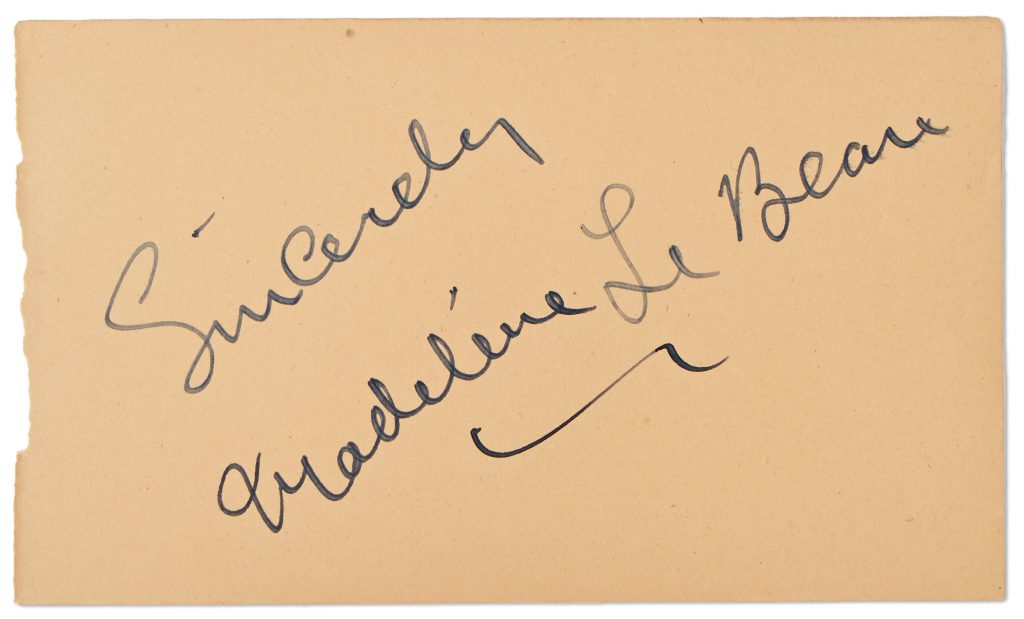 Sincerely
Madeleine Le Beau